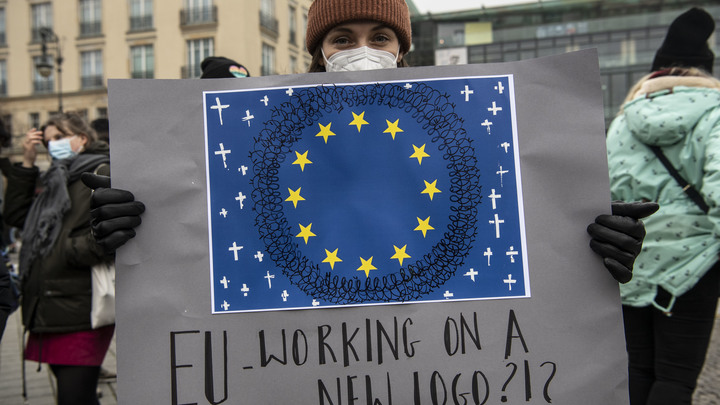 EU-WORKING ON A
NEW LOGO?!?